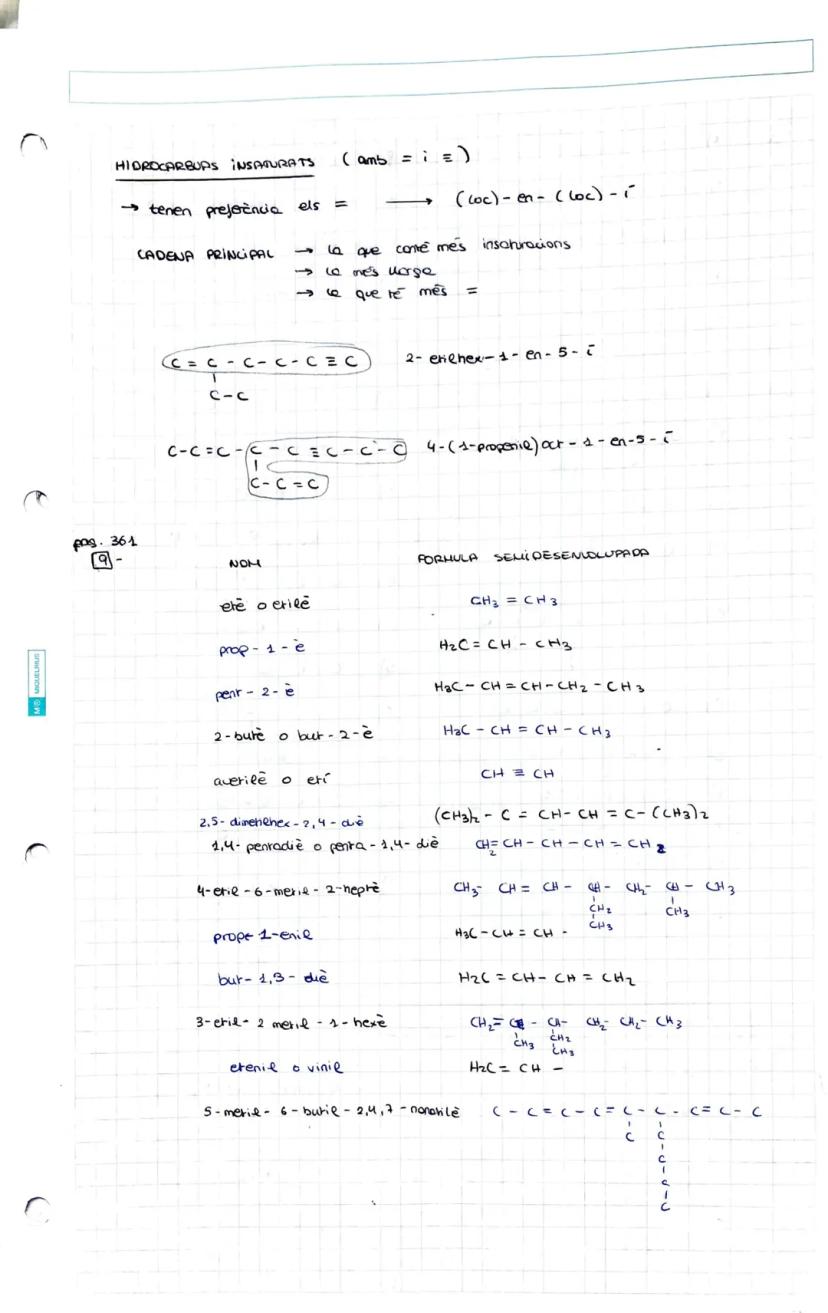 HIDROCARBURS INSATURATS (amb = i ≡)
→ tenen preferència els = ⟶ (loc)-en-(loc)-í
CADENA PRINCIPAL → la que conté més insaturacions
→ la més llarga
→ la que té més =
C = C - C - C - C ≡ C 2-etilhex-1-en-5-í
C-C
C-C=C-C-C≡C-C-C 4-(1-propenil)oct-1-en-5-í
C-C=C
pag. 361
9-
NOM FORMULA SEMIDESENVOLUPADA
etè o etilè CH3 = CH3
prop-1-è H2C=CH-CH3
pent-2-è H3C-CH=CH-CH2-CH3
2-butè o but-2-è H3C-CH=CH-CH3
acetilè o etí CH≡CH
2,5-dimetilhex-2,4-diè (CH3)2-C=CH-CH=C-(CH3)2
1,4-pentadiè o penta-1,4-diè CH2=CH-CH-CH=CH2
4-etil-6-metil-2-heptè CH3-CH=CH-CH-CH2-CH-CH3
CH2 CH3
CH3
prop-1-enil H3C-CH=CH-
but-1,3-diè H2C=CH-CH=CH2
3-etil-2 metil-1-hexè CH2=C-CH-CH2-CH2-CH3
CH3 CH2
CH3
etenil o vinil H2C=CH-
5-metil-6-butil-2,4,7-nonatilè C-C=C-C=C-C-C=C-C
C C
C
C
C
MIQUELRIUS